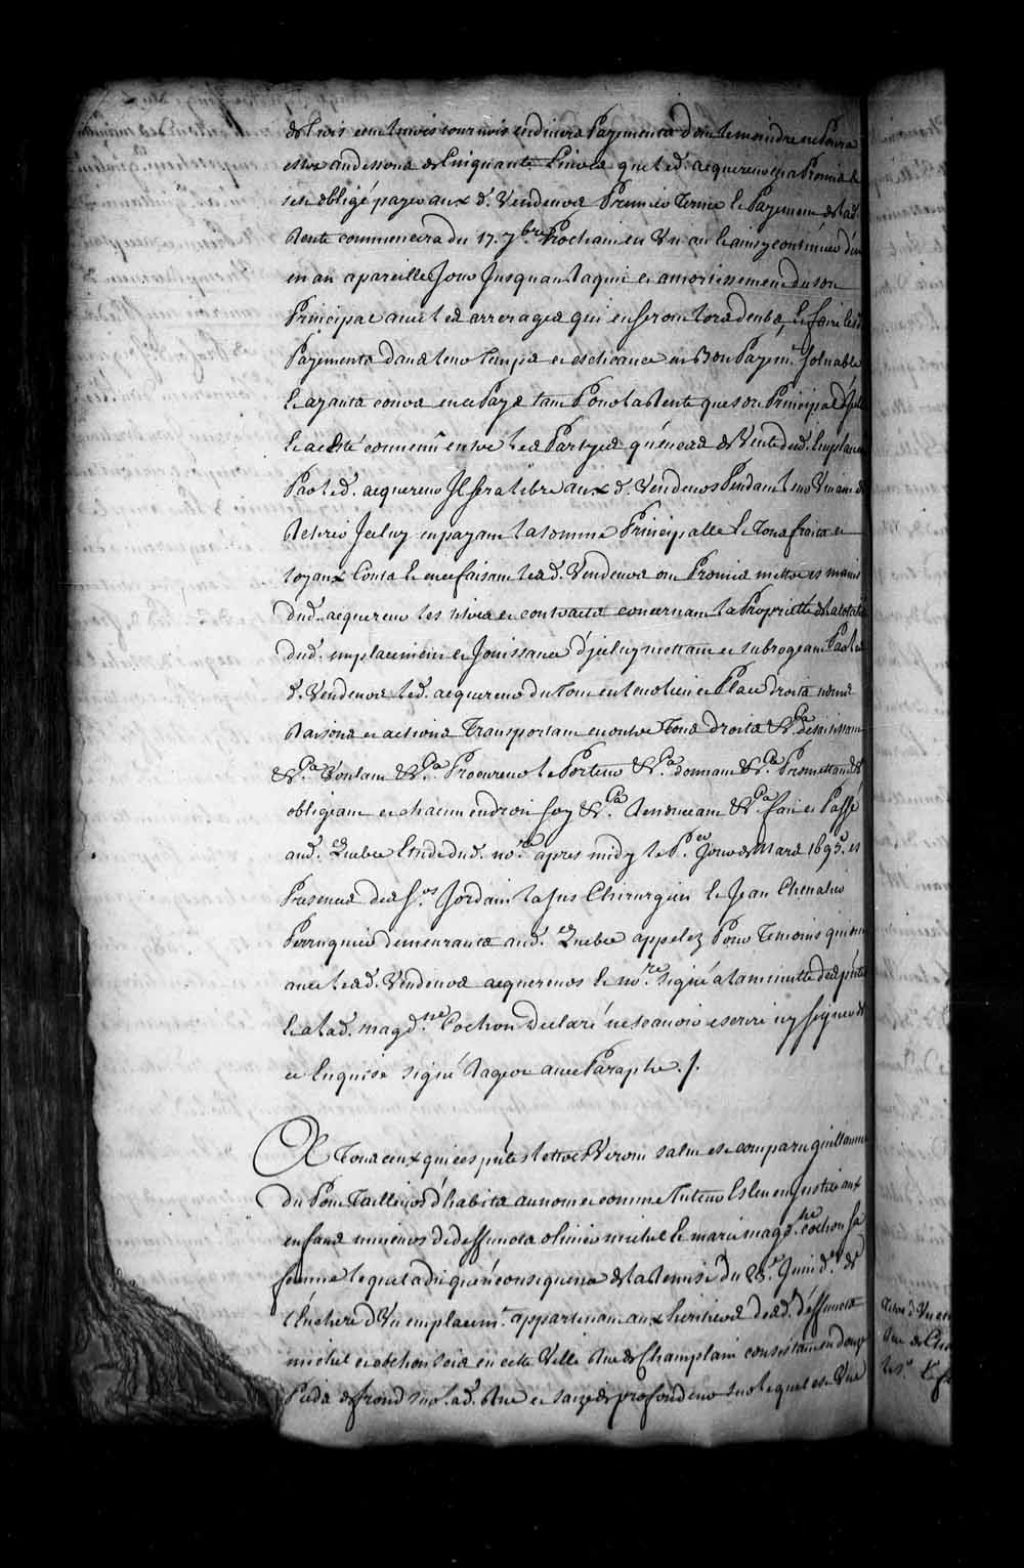 de trois cent livres tournois en divers Payements dont le moindre ne Poura
estre audessous de Cinquante Livres que led. acquereur a Promis &
sest obligé payer aux d. Vendeurs Premier Terme & Payement de lad.
Rente commencera du 17. 7bre Prochain en Un an & ainsy continuer d'an
en an a pareille Jour Jusquau Raquit et amortissement du son
Principal avec les arrerages qui en seront lors deubs, & faire lesd.
Payements dans leur temps et escheance en Bon Payemt. solvable
& ayants cours en ce Pays tant Pour la Rente que son Principal
& a esté convenû entre les Partyes qu'en cas de Vente dud. Emplacement
Par led. acquereur Il sera libre aux d. Vendeurs Pendant leur Vivant de
Retirer Iceluy en payant la somme Principalle & Tous fraits et
loyaux Couts & en ce faisant lesd. Vendeurs ont Promis mettre es mains
dud. acquereur les titres et contracts concernant la Proprietté
dud. emplacement & Jouissance d'iceluy mettant et subrogeant Par les
d. Vendeurs led. acquereur du Tout en leur lieu et Place droits noms
Raisons et actions Transportant en outre Tous droits &ca. desaisissant
&ca. Voulant &ca. Procureur le Porteur &ca. donnant &ca. Promettant &
obligeant et chacun endroit soy &ca. Renonceant &ca. fait et Passé
aud. Quebec Etude dud. nore. apres midy le Per. Jour de Mars 1695. es
Presences des Srs. Jordain Lajus Chirurgien & Jean Chevalier
Perruquier demeurants aud. Quebec appelez Pour Temoins qui ont
avec lesd. Vendeurs acquereurs & nore. signé a la minutte des pntes
& a lad. magdne. Cochon declaré ne scavoir escrire ny signer de
ce Enquise signé Rageot avec Paraphe ./.

A Tous ceux qui ces pntes lettres Verront salut est comparu guillaume
du Pont Taillieur d'habits au nom et comme Tuteur Esleu en Justice aux
enfans mineurs de deffuncts olivier michel le marié magdne. Cochon sa
femme lequel a dit qu'en consequence de la Remise du 28e. Juin dr. de
l'Enchere d'Un emplacemt. appartenant aux heritiers desd. deffuncts
michel et Cochon scis en cette Ville Rue de Champlain consistant en douze
Pieds de front sur lad. Rue et saize de profondeur sur lequel est Une